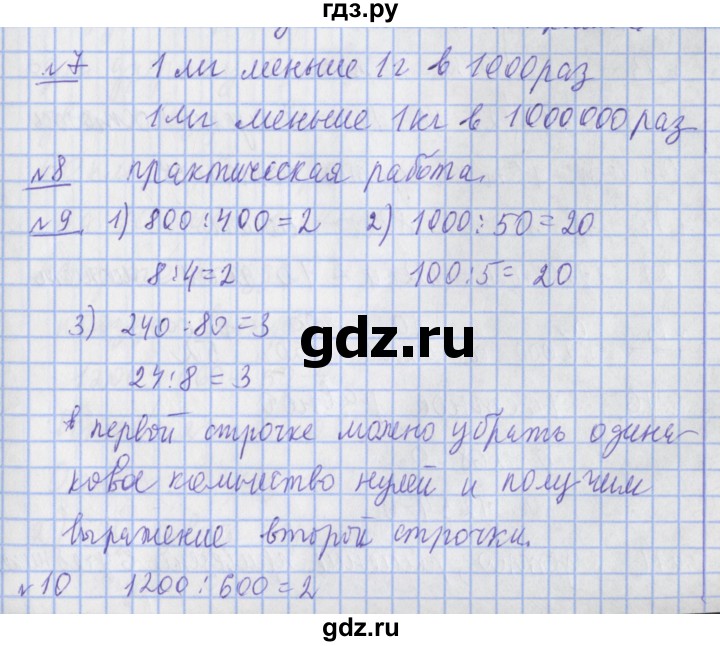 гдз.ру
№7 1 мг меньше 1 г в 1000 раз
1 мг меньше 1 кг в 1000000 раз
№8 практическая работа.
№9. 1) 800 : 400 = 2 2) 1000 : 50 = 20
8 : 4 = 2 100 : 5 = 20
3) 240 : 80 = 3
24 : 8 = 3
gdz.ru
в первой строчке можно убрать одина-
ковое количество нулей и получим
выражение второй строчки.
№10 1200 : 600 = 2
gdz.ru